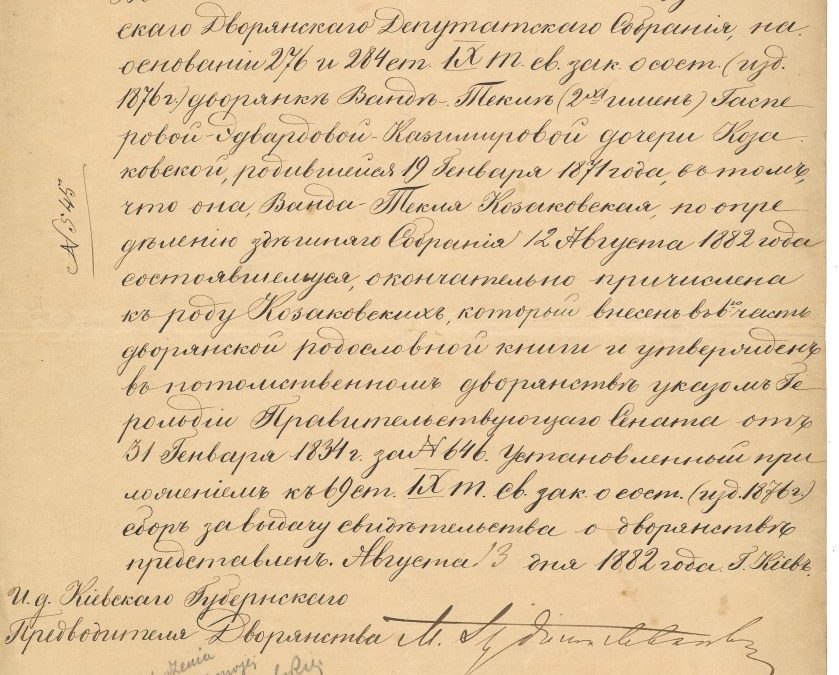 скаго Дворянскаго Депутатскаго Собранія, на
основаніи 276 и 284 ст. IX т. св. зак. о сост. (изд.
1876 г.) дворянкѣ Вандѣ-Теклѣ (2хъ именъ) Гаспе
ровой-Эдвардовой-Казимировой дочери Коза
ковской, родившейся 19 Генваря 1871 года, въ томъ,
что она, Ванда-Текля Козаковская, по опре
дѣленію здѣшняго Собранія 12 Августа 1882 года
состоявшемуся, окончательно причислена
къ роду Козаковскихъ, который внесенъ въ 1ю часть
дворянской родословной книги и утвержденъ
въ потомственномъ дворянствѣ указомъ Ге
рольдіи Правительствующаго Сената отъ
31 Генваря 1834 г. за № 646. Установленный при
ложеніемъ къ 69 ст. IX т. св. зак. о сост. (изд. 1876 г.)
сборъ за выдачу свидѣтельства о дворянствѣ
представленъ. Августа 13 дня 1882 года. Г. Кіевъ.
№ 545
И. д. Кіевскаго Губернскаго
Предводителя Дворянства М.